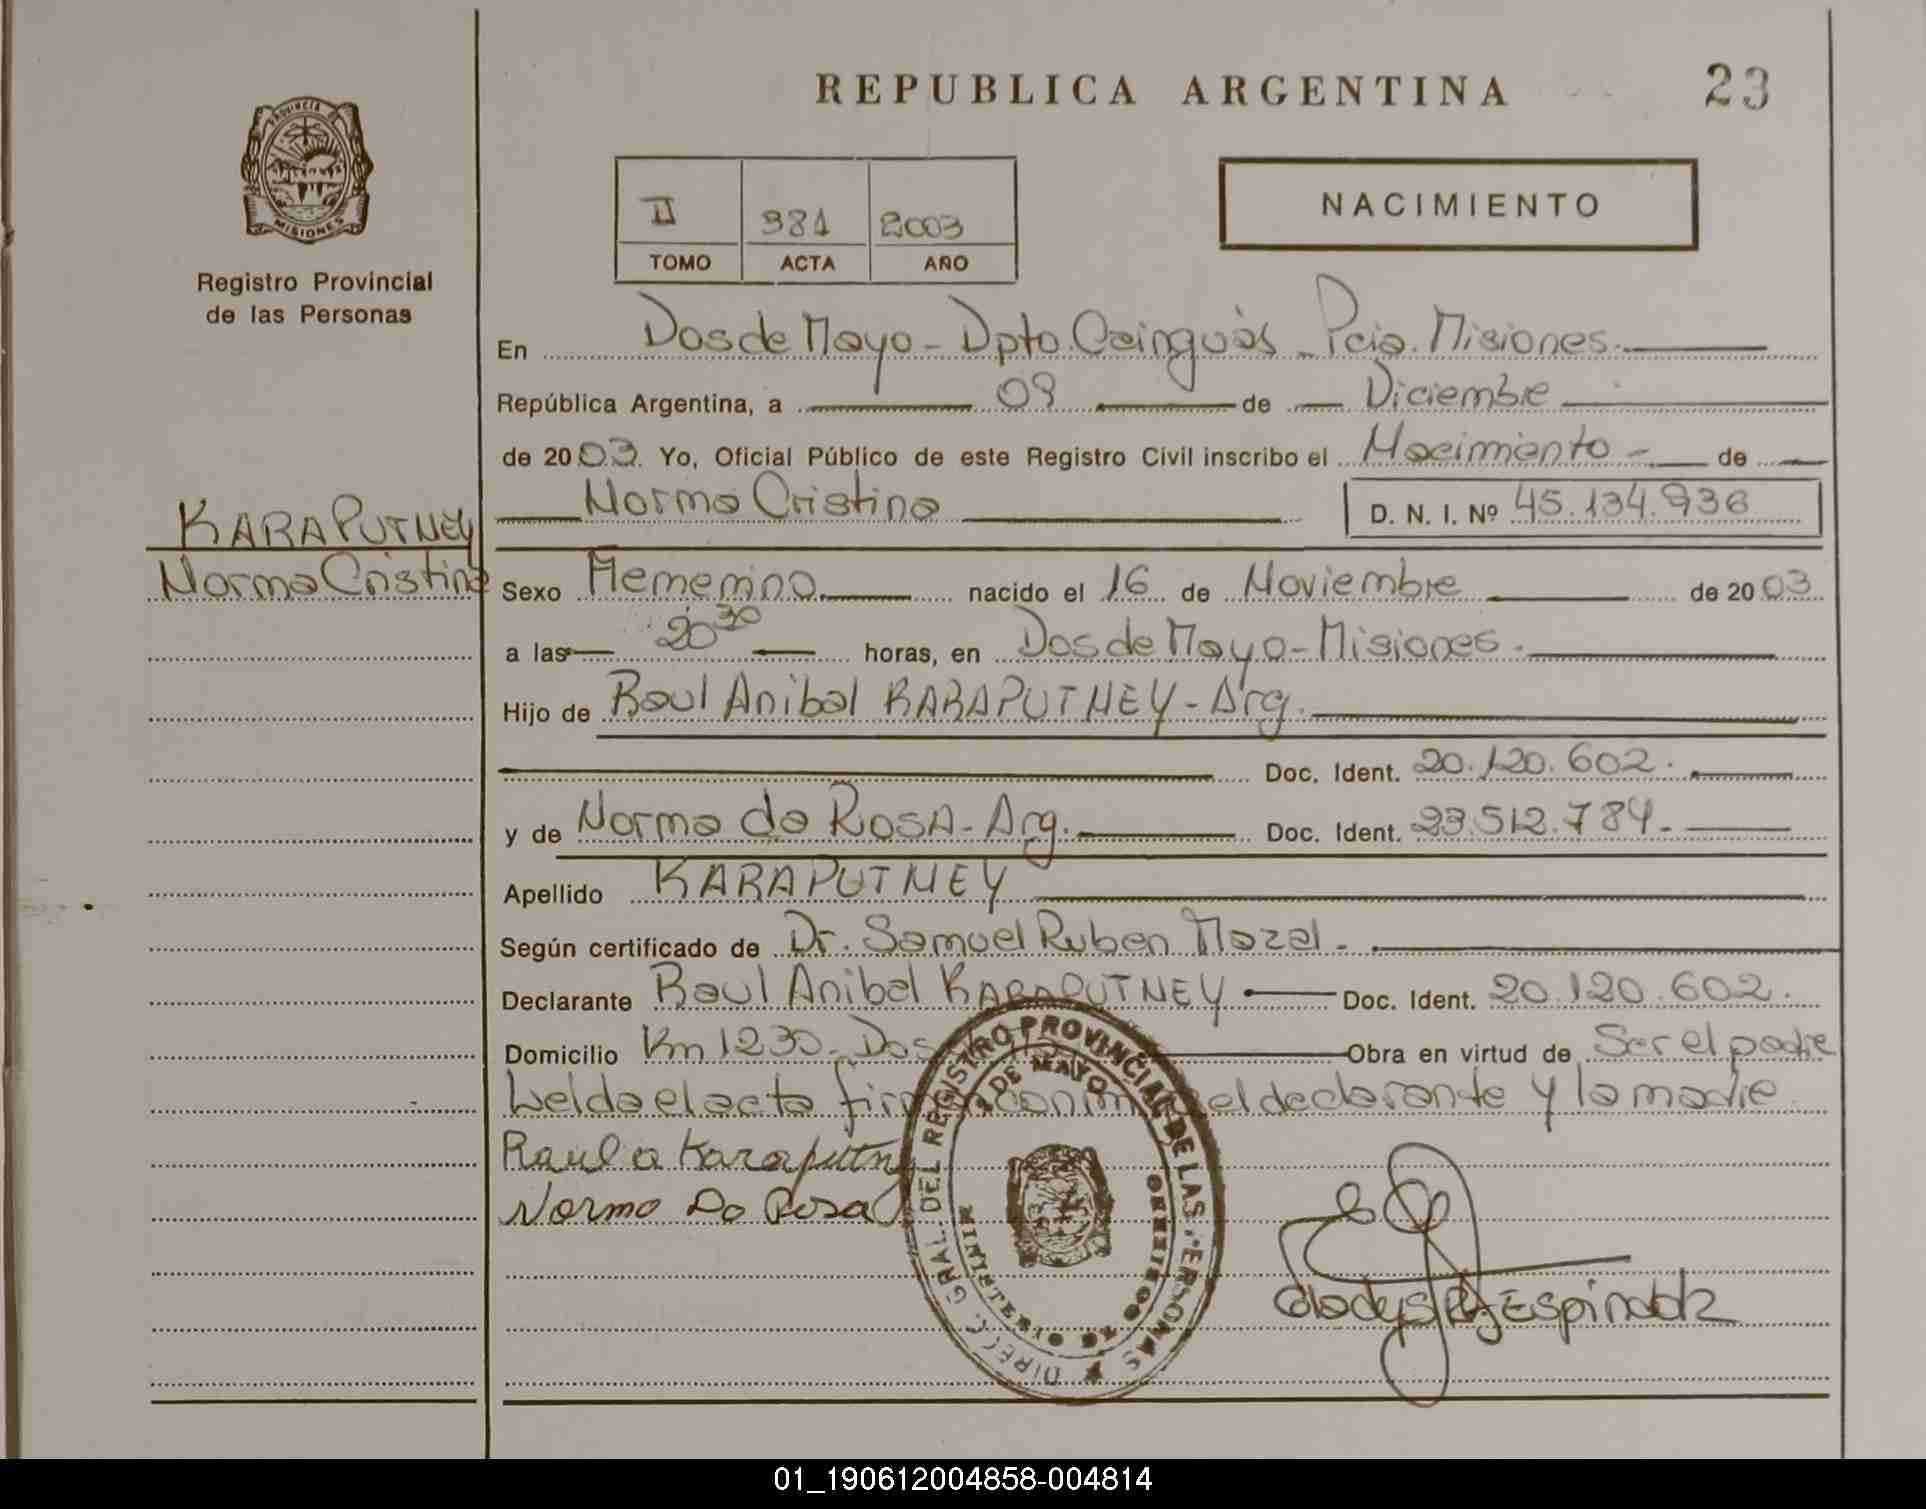 REPUBLICA ARGENTINA
23
PROVINCIA DE
MISIONES
Registro Provincial
de las Personas
II 381 2003
TOMO ACTA AÑO
NACIMIENTO
En Dos de Mayo - Dpto Cainguás - Pcia. Misiones.
República Argentina, a 09 de Diciembre
de 2003. Yo, Oficial Público de este Registro Civil inscribo el Nacimiento - de
Norma Cristina D. N. I. Nº 45.134.936
KARAPUTNEY
Norma Cristina
Sexo Femenino nacido el 16 de Noviembre de 2003
a las 20 30 horas, en Dos de Mayo - Misiones.
Hijo de Raul Anibal KARAPUTNEY - Arg.
Doc. Ident. 20.120.602.
y de Norma da ROSA - Arg. Doc. Ident. 23.512.784.
Apellido KARAPUTNEY
Según certificado de Dr. Samuel Ruben Mazal.
Declarante Raul Anibal KARAPUTNEY Doc. Ident. 20.120.602.
Domicilio Km 1230 - Dos Obra en virtud de Ser el padre
Leida el acta conmigo el declarante y la madre
Raul a Karaputny
Norma Da Rosa
DIREC. GRAL. DEL REGISTRO PROVINCIAL DE LAS PERSONAS
2 DE MAYO
MINISTERIO DE GOBIERNO
Gladys Espindola
01_190612004858-004814